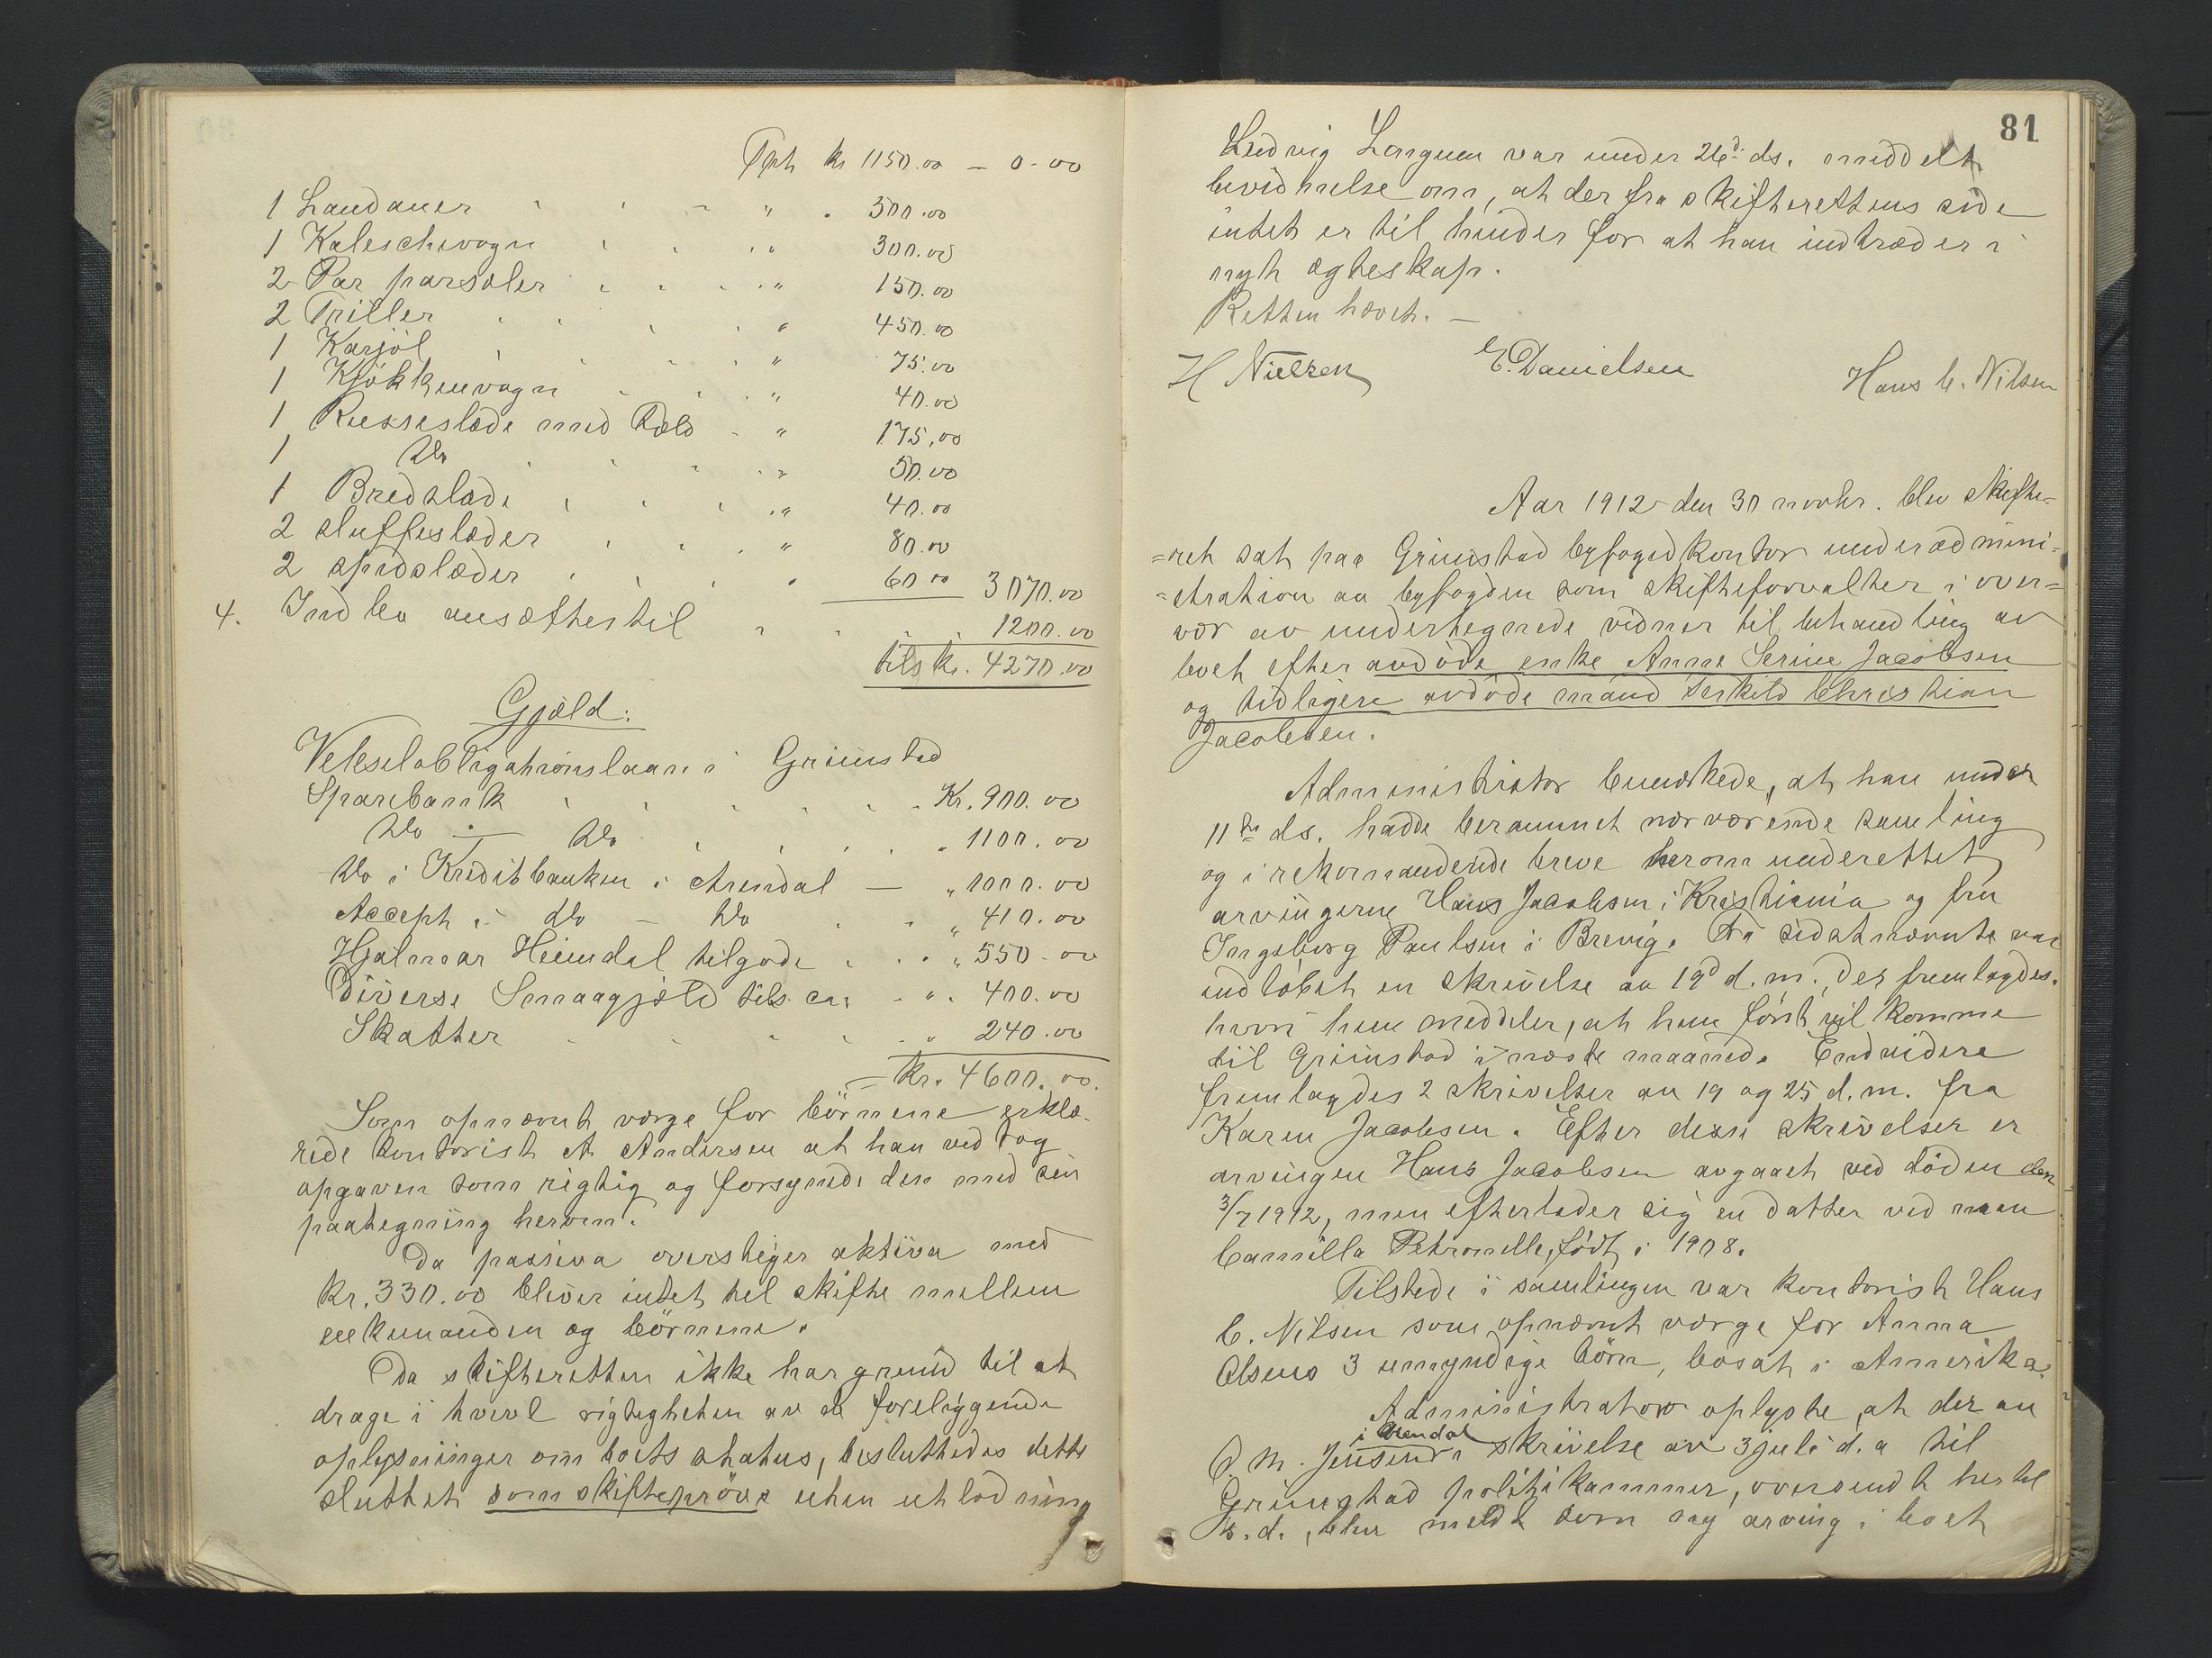 Tpt kr 1150.00 – 0.00
1 Landauer " 500.00
1 Kaleschevogn " 300.00
2 Par parsæler " 150.00
2 Triller " 450.00
1 Karjol " 75.00
1 Kjøkkenvogn " 40.00
1 Russeslæde med Pels " 175.00
1 Do " 50.00
1 Bredslæde " 40.00
2 sluffeslæder " 80.00
2 spidslæder " 60.00 3070.00
4. Indbo ansættes til 1200.00
tils kr. 4270.00
Gjæld:
Vekselobligationslaan i Grimstad
Sparebank Kr. 900.00
Do – Do " 1100.00
Do i Kreditbanken i Arendal – " 1000.00
Accept i Do – Do " 410.00
Hjalmar Heimdal tilgode " 550.00
Diverse Smaagjæld tils. ca. " 400.00
Skatter " 240.00
= Kr. 4600.00.
Som opnævnt værge for börnene erklæ-
rede kontorist A Andersen at han vedtog
opgaven som rigtig og forsynede den med sin
paategning herom.
Da passiva overstiger aktiva med
kr. 330.00 bliver intet til skifte mellem
enkemanden og börnene.
Da skifteretten ikke har grund til at
drage i tvivl rigtigheten av de foreliggende
oplysninger om boets status, besluttedes dette
sluttet som skifteprøve uten utlodning
81
Ludvig Longum var under 26d ds. meddelt
bevidnelse om, at der fra skifterettens side
intet er til hinder for at han indtræder i
nyt ægteskap.
Retten hævet. –
H Nielsen E. Danielsen Hans C. Nilsen
Aar 1912 den 30 novbr. blev skifte=
=ret sat paa Grimstad byfogedkontor under admini=
=stration av byfogden som skifteforvalter i over=
vær av undertegnede vidner til behandling av
boet efter avdöde enke Anne Serine Jacobsen
og tidligere avdöde mand Terkild Christian
Jacobsen.
Administrator bemærkede, at han under
11te ds. hadde berammet nærværende samling
og i rekommanderede breve herom underettet
arvingerne Hans Jacobsen i Kristiania og fru
Ingeborg Paulsen i Brevig. Fra sidstnævnte var
indløbet en skrivelse av 19d d.m., der fremlagdes.
hvori hun meddeler, at hun först vil komme
til Grimstad i næste maaned. Endvidere
fremlagdes 2 skrivelser av 19 og 25 d.m. fra
Karen Jacobsen. Efter disse skrivelser er
arvingen Hans Jacobsen avgaaet ved döden den
3/7 1912, men efterlader sig en datter ved navn
Camilla Petronelle, födt i 1908.
Tilstede i samlingen var kontorist Hans
C. Nilsen som opnævnt værge for Anna
Olsens 3 umyndige börn, bosat i Amerika.
Administrator oplyste, at der av
i Arendal
P. M. Jensen i skrivelse av 3 juli d.a til
Grimstad politikammer, oversendt hertil
s.d., blev meldt som ny arving i boet